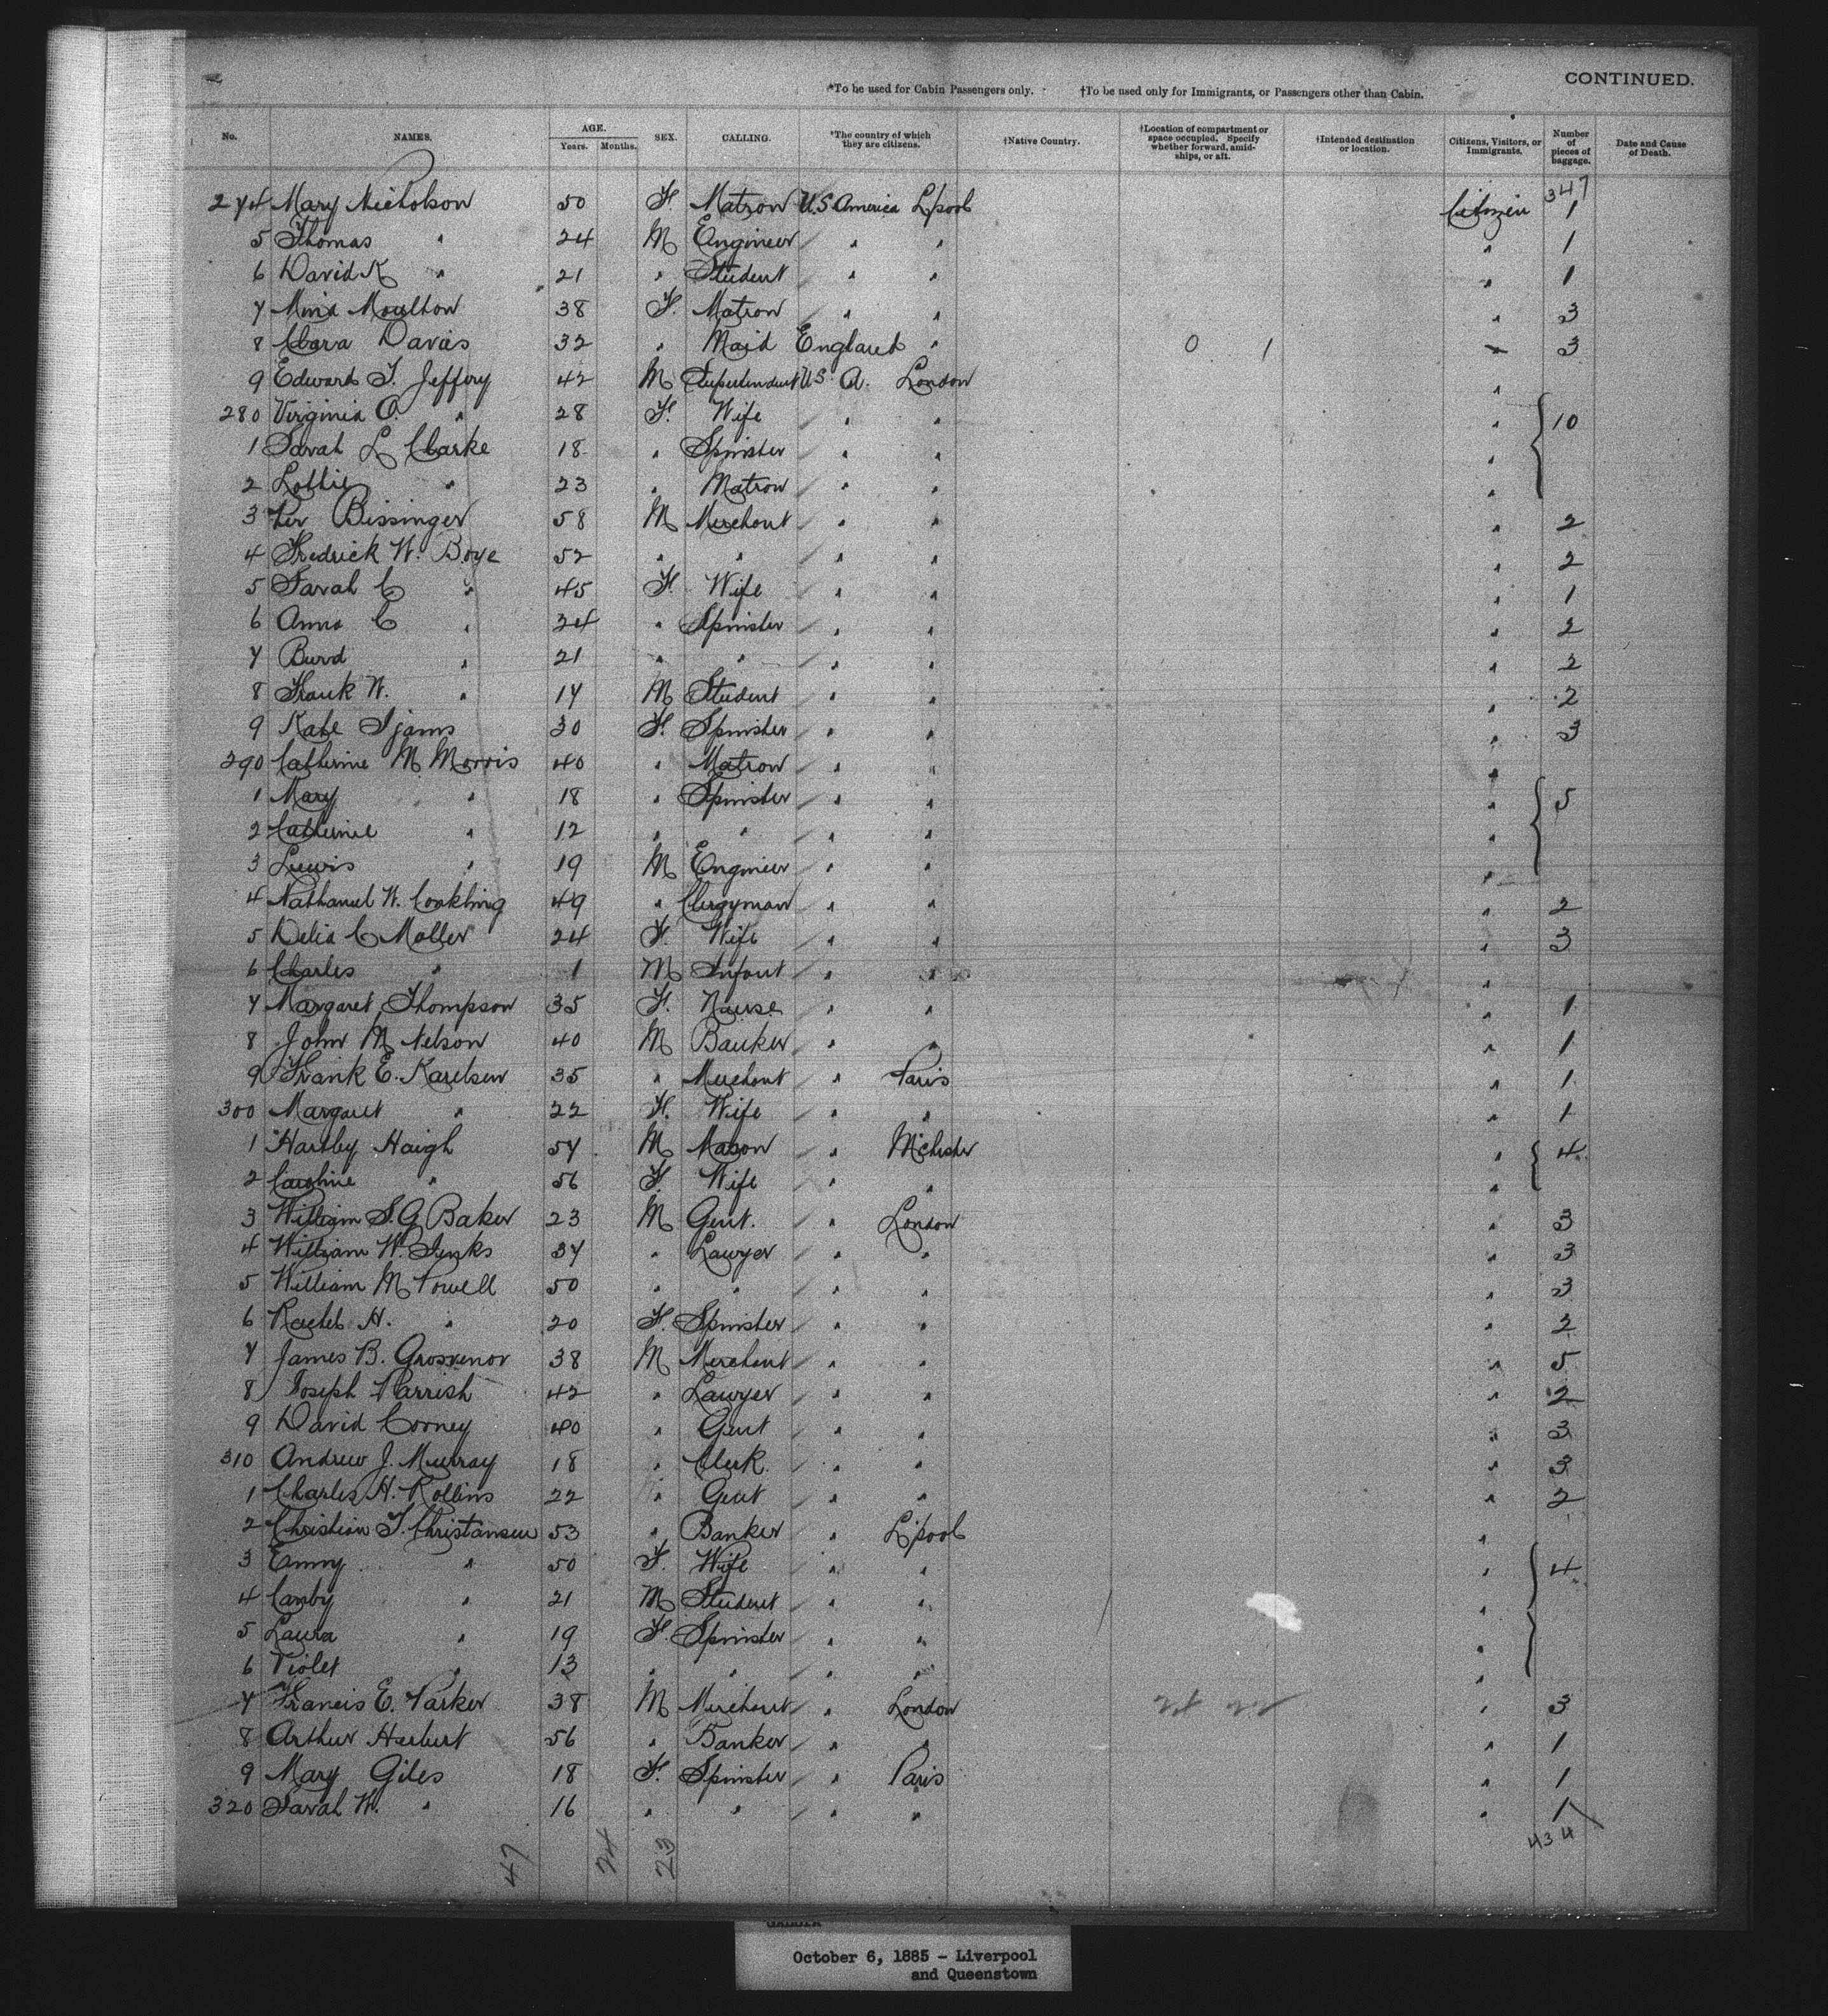 CONTINUED.
*To be used for Cabin Passengers only. †To be used only for Immigrants, or Passengers other than Cabin.
No. NAMES. AGE. Years. Months. SEX. CALLING. *The country of which they are citizens. †Native Country. †Location of compartment or space occupied. Specify whether forward, amidships, or aft. †Intended destination or location. Citizens, Visitors, or Immigrants. Number of pieces of baggage. Date and Cause of Death.
347
274 Mary Nicholson 50 F Matron U.S America L'pool Citizen 1
5 Thomas " 24 M Engineer " " " 1
6 David K " 21 " Student " " " 1
7 Mina Moulton 38 F. Matron " " " 3
8 Clara Davis 32 " Maid England " 0 1 3
9 Edward T. Jeffery 42 M U.S. A. London "
280 Virginia O. " 28 F. Wife " " " 10
1 Sarah L Clarke 18 " Spinster " " "
2 Lottie " 23 " Matron " " "
3 Bissinger 58 M Merchant " " " 2
4 Fredrick W. Boye 52 " " " " " 2
5 Sarah C " 45 F. Wife " " " 1
6 Anna C " 24 " Spinster " " " 2
7 Burd " 21 " " " " " 2
8 Frank W. " 17 M Student " " " 2
9 Kate Ijams 30 F. Spinster " " " 3
290 Catherine M. Morris 40 " Matron " " "
1 Mary " 18 " Spinster " " " 5
2 Catherine " 12 " " " " "
3 Lewis " 19 M Engineer " " "
4 Nathaniel W. Conkling 49 " Clergyman " " " 2
5 Delia C Moller 24 F. Wife " " " 3
6 Charles " 1 M Infant " " "
7 Margaret Thompson 35 F. Nurse " " " 1
8 John M Nelson 40 M Banker " " " 1
9 Frank E. Karelsen 35 " Merchant " Paris " 1
300 Margaret " 22 F. Wife " " " 1
1 Hartley Haigh 57 M Mason " M'chester " 4
2 Caroline " 56 F. Wife " " "
3 William S. G Baker 23 M Gent. " London " 3
4 William W. Jenks 37 " Lawyer " " " 3
5 William M Powell 50 " " " " " 3
6 Rachel H. " 20 F. Spinster " " " 2
7 James B. Grosvenor 38 M Merchant " " " 5
8 Joseph Parrish 42 " Lawyer " " " 2
9 David Corney 40 " Gent " " " 3
310 Andrew J. Murray 18 " Clerk " " " 3
1 Charles H. Rollins 22 " Gent " " " 2
2 Christian T. Christansen 53 " Banker " L'pool "
3 Emmy " 50 F. Wife " " " 4
4 Canby " 21 M Student " " "
5 Laura " 19 F. Spinster " " "
6 Violet " 13 " " " " "
7 Francis E. Parker 38 M Merchant " London " 3
8 Arthur Herbert 56 " Banker " " " 1
9 Mary Giles 18 F. Spinster " Paris " 1
320 Sarah W. " 16 " " " " " 1
47 24 23 434
October 6, 1885 - Liverpool
and Queenstown